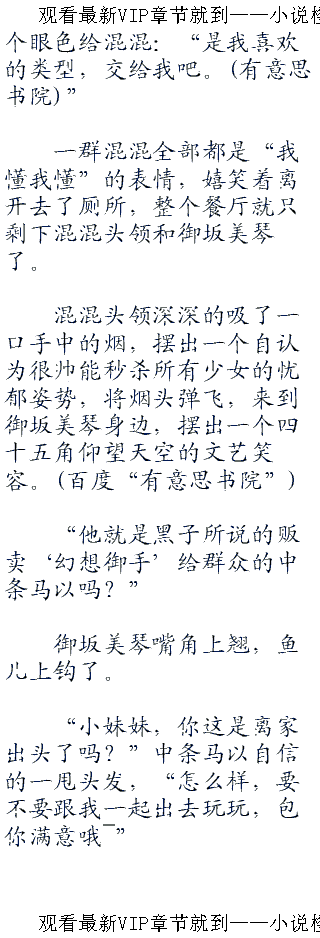 观看最新VIP章节就到——小说检
个眼色给混混：“是我喜欢
的类型，交给我吧。(有意思
书院)”
一群混混全部都是“我
懂我懂”的表情，嬉笑着离
开去了厕所，整个餐厅就只
剩下混混头领和御坂美琴
了。
混混头领深深的吸了一
口手中的烟，摆出一个自认
为很帅能秒杀所有少女的忧
郁姿势，将烟头弹飞，来到
御坂美琴身边，摆出一个四
十五角仰望天空的文艺笑
容。(百度“有意思书院”)
“他就是黑子所说的贩
卖‘幻想御手’给群众的中
条马以吗？”
御坂美琴嘴角上翘，鱼
儿上钩了。
“小妹妹，你这是离家
出头了吗？”中条马以自信
的一甩头发，“怎么样，要
不要跟我一起出去玩玩，包
你满意哦~”
观看最新VIP章节就到——小说检